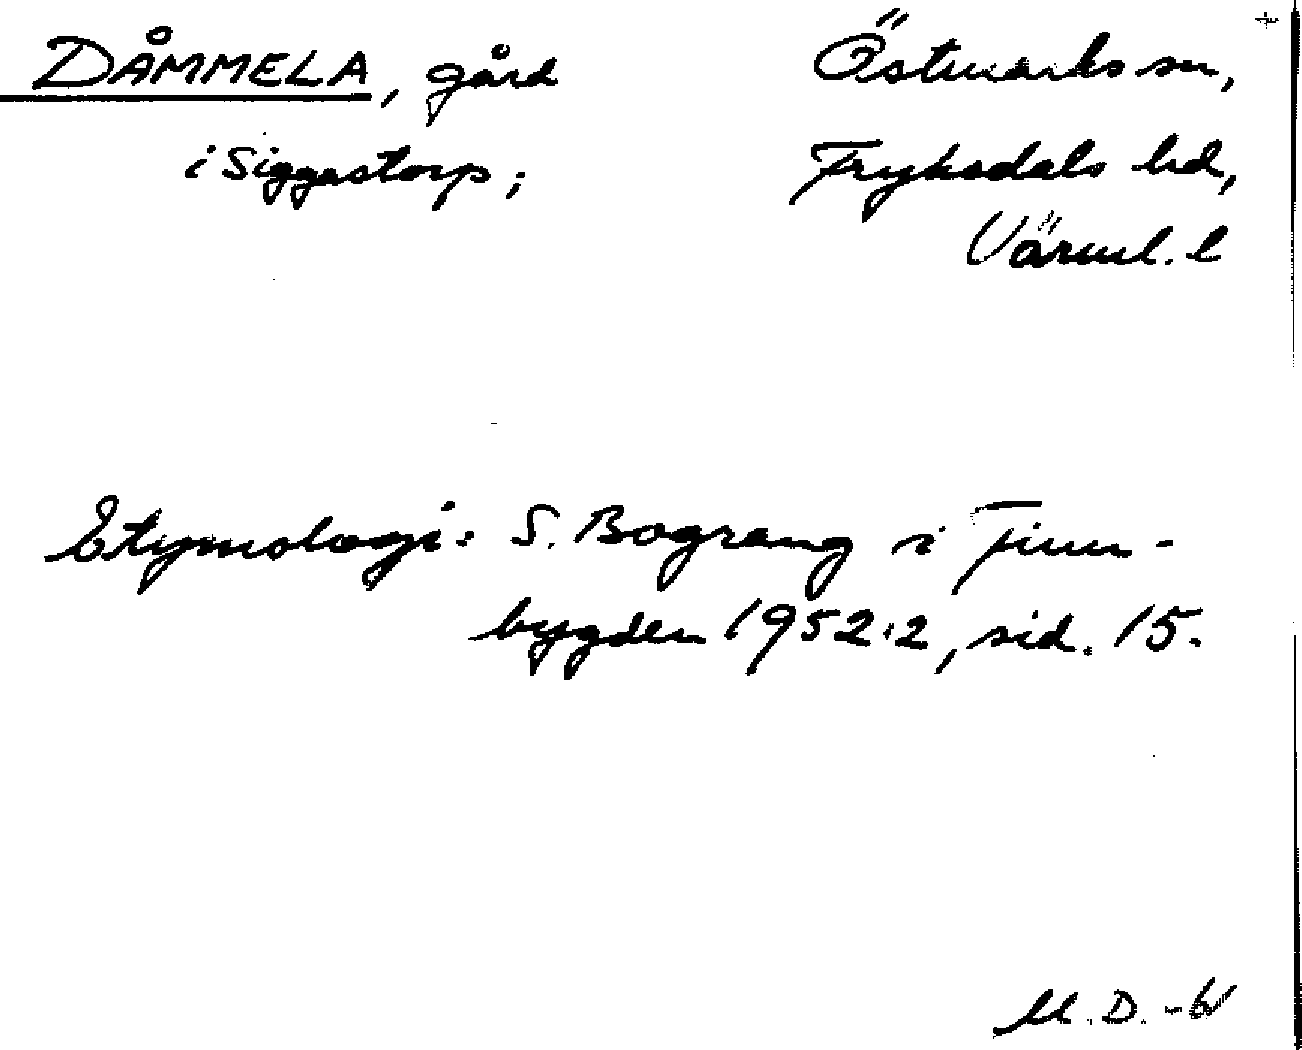 DÅMMELA, gård
i Siggastorp;
Östmarks sn,
Fryksdals hd,
Värml. l
Etymologi: S. Bograng i Finn-
bygden 1952:2, sid. 15.
M. D.-W